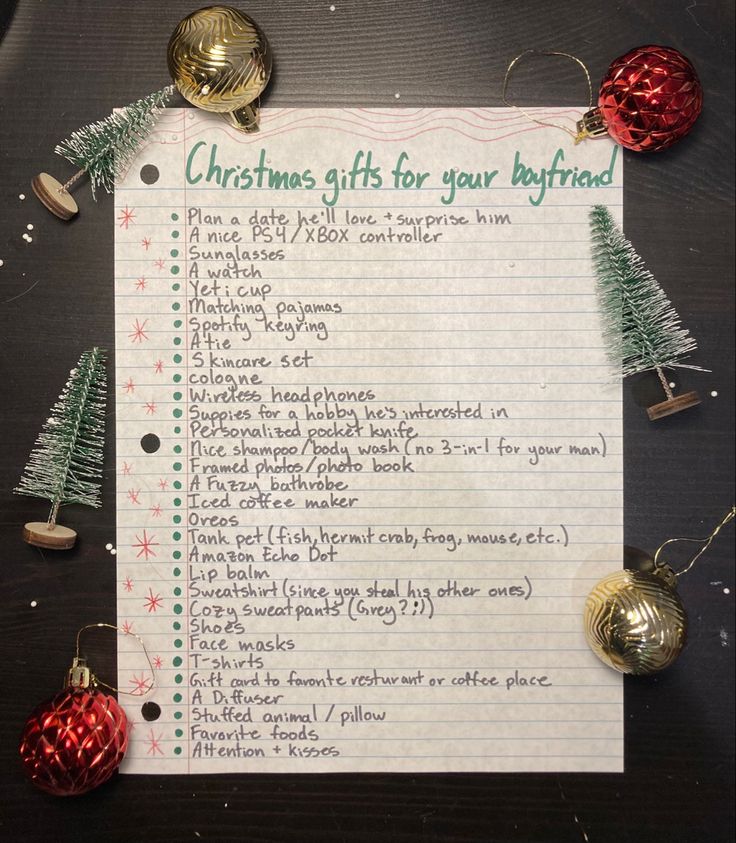 Christmas gifts for your boyfriend
• Plan a date he'll love + surprise him
• A nice PS4/XBOX controller
• Sunglasses
• A watch
• Yeti cup
• Matching pajamas
• Spotify keyring
• A tie
• Skincare set
• cologne
• Wireless headphones
• Suppies for a hobby he's interested in
• Personalized pocket knife
• Nice shampoo/body wash (no 3-in-1 for your man)
• Framed photos/photo book
• A Fuzzy bathrobe
• Iced coffee maker
• Oreos
• Tank pet (fish, hermit crab, frog, mouse, etc.)
• Amazon Echo Dot
• Lip balm
• Sweatshirt (since you steal his other ones)
• Cozy sweatpants (Grey? ;))
• Shoes
• Face masks
• T-shirts
• Gift card to favorite resturant or coffee place
• A Diffuser
• Stuffed animal / pillow
• Favorite foods
• Attention + kisses